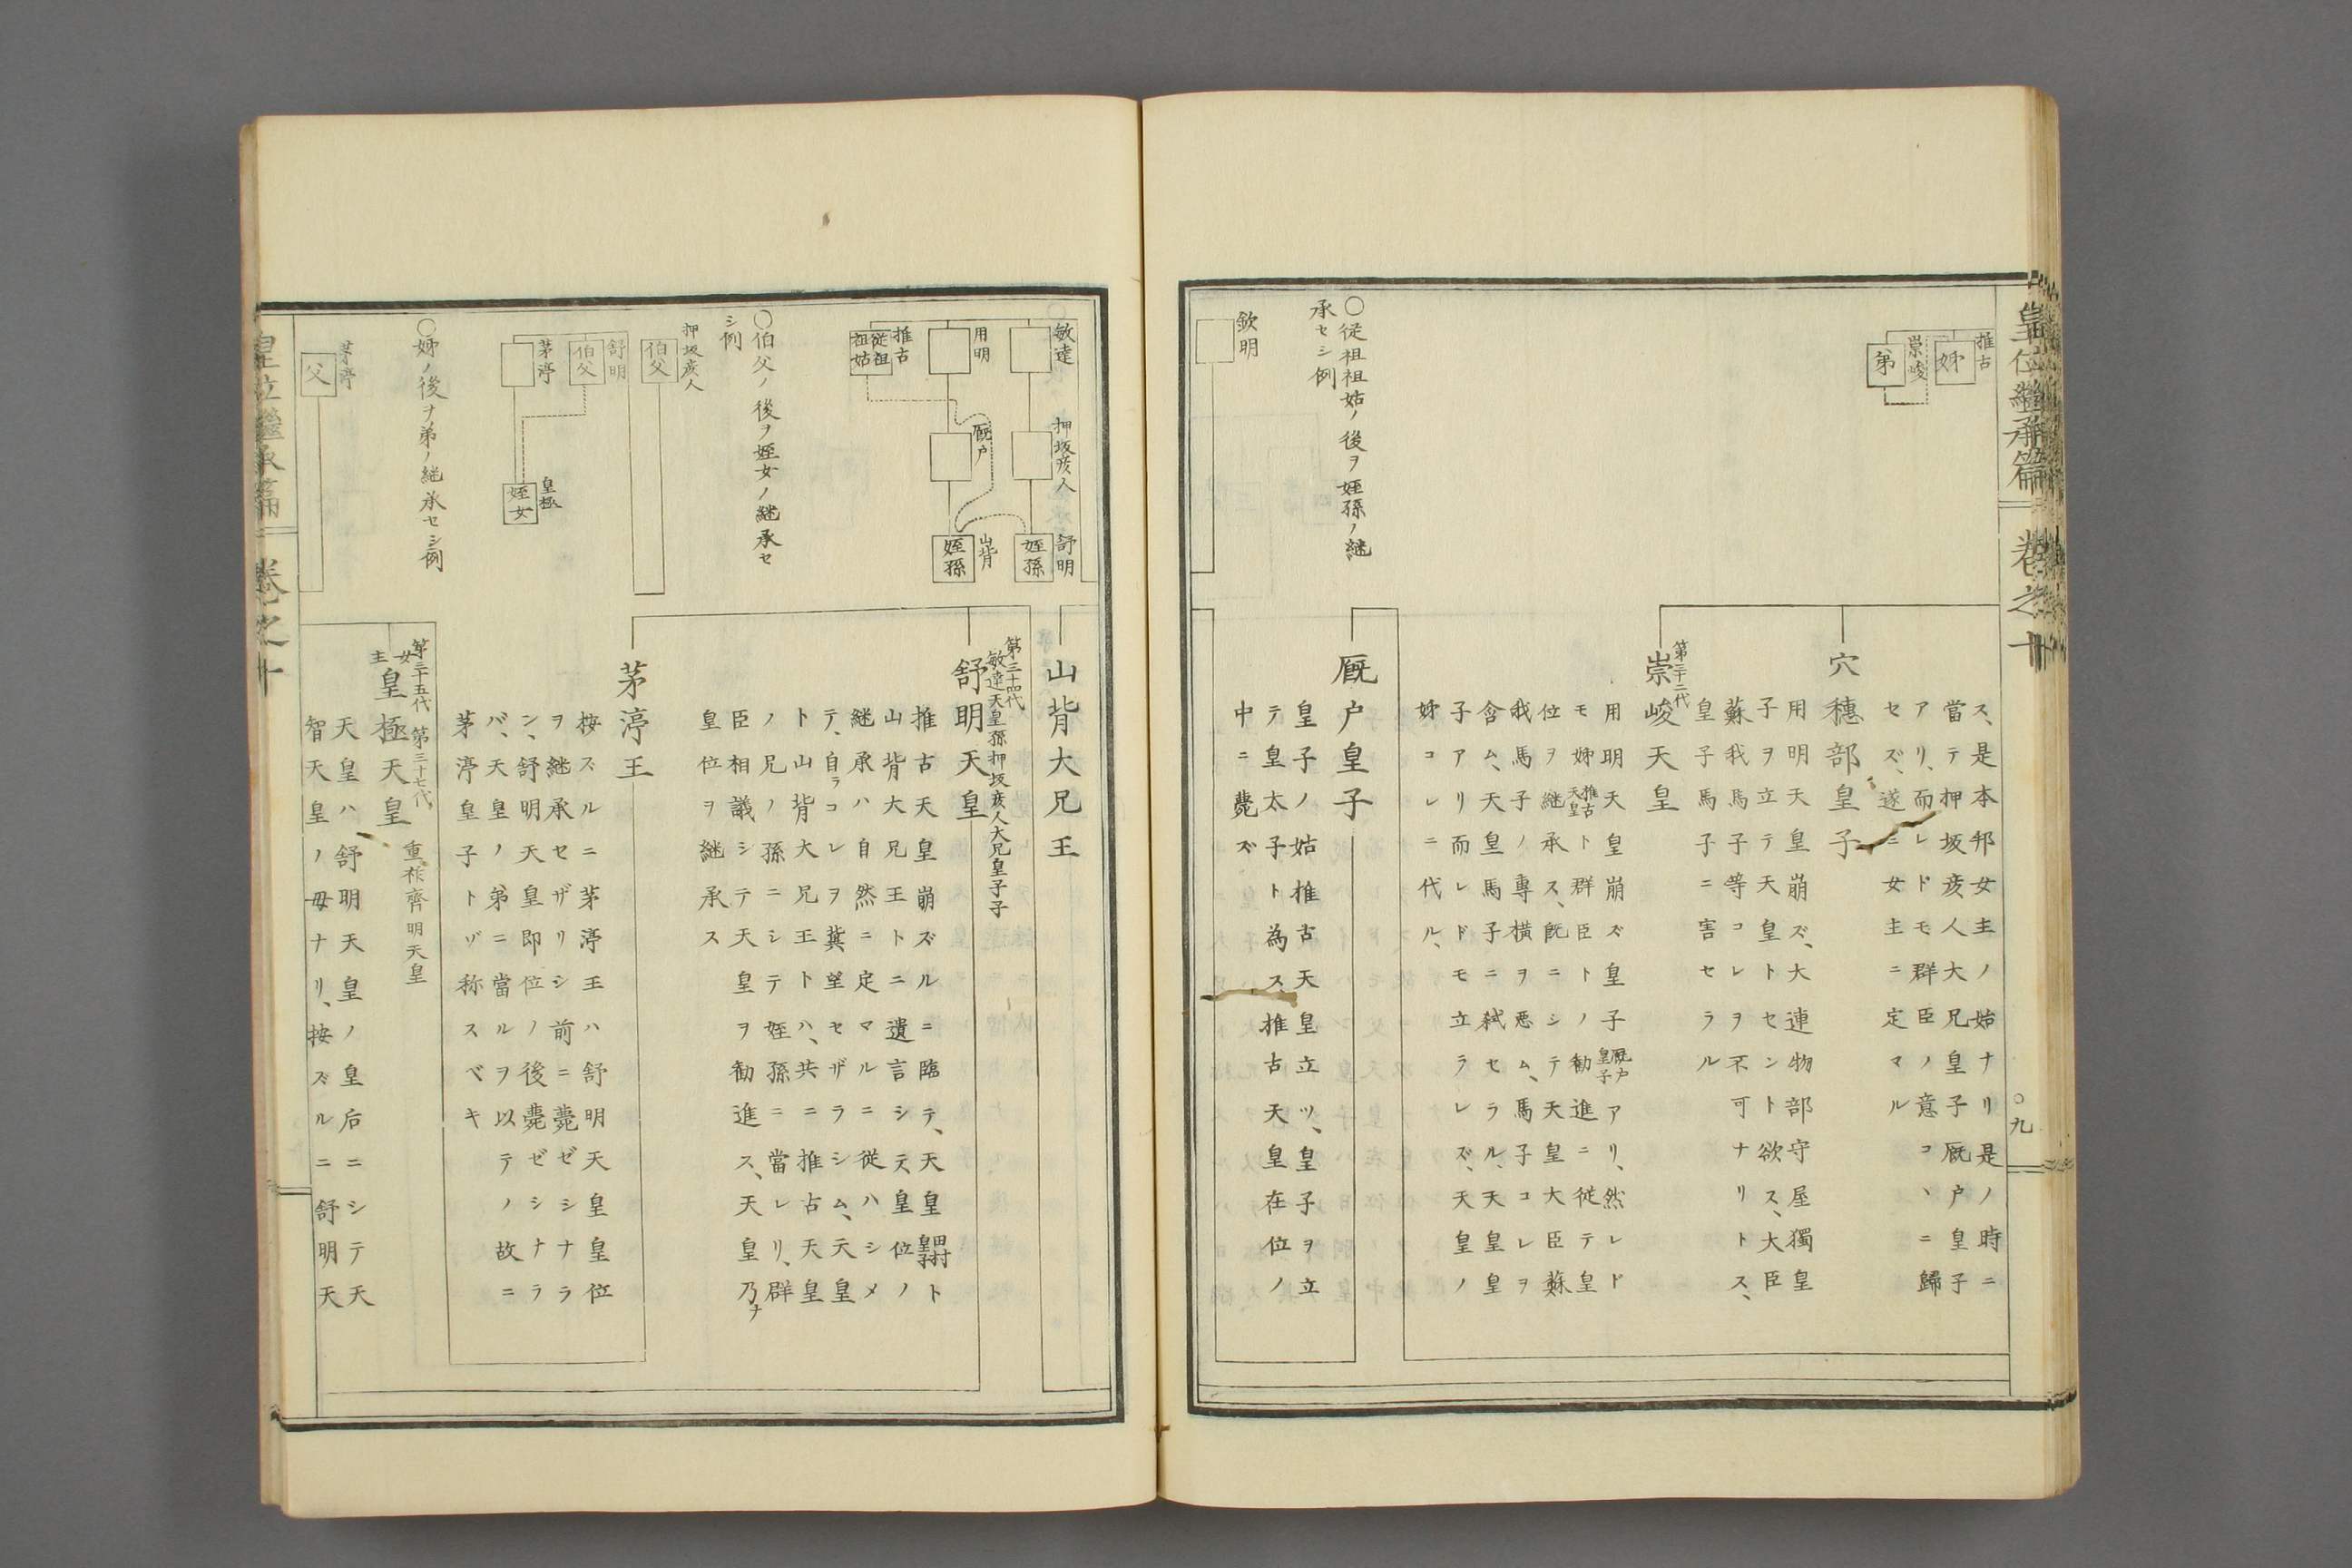 皇位継承篇 巻之十 ○九
推古
姉
崇峻
弟
○従祖祖姑ノ後ヲ姪孫ノ継
承セシ例
欽明
ス、是本邦女主ノ始ナリ是ノ時ニ
當テ押坂彦人大兄皇子厩戸皇子
アリ、而レドモ群臣ノ意コヽニ歸
セズ、遂ニ女主ニ定マル
穴穗部皇子
用明天皇崩ズ、大連物部守屋獨皇
子ヲ立テ天皇トセント欲ス、大臣
蘇我馬子等コレヲ不可ナリトス、
皇子馬子ニ害セラル
第三十二代
崇峻天皇
用明天皇崩ズ皇子厩戸皇子アリ、然レド
モ姉推古天皇ト群臣トノ勧進ニ従テ皇
位ヲ継承ス、既ニシテ天皇大臣蘇
我馬子ノ專横ヲ悪ム、馬子コレヲ
含ム、天皇馬子ニ弑セラル、天皇皇
子アリ而レドモ立ラレズ、天皇ノ
姉コレニ代ル、
厩戸皇子
皇子ノ姑推古天皇立ツ、皇子ヲ立
テ皇太子ト為ス、推古天皇在位ノ
中ニ薨ズ
敏達
押坂彦人
舒明
姪孫
用明
厩戸
山背
姪孫
推古
従祖祖姑
○伯父ノ後ヲ姪女ノ継承セ
シ例
押坂彦人
伯父
舒明
伯父
茅渟
皇極
姪女
○姉ノ後ヲ弟ノ継承セシ例
茅渟
父
山背大兄王
第三十四代
敏達天皇孫押坂彦人大兄皇子子
舒明天皇
推古天皇崩ズルニ臨テ、天皇田村皇子ト
山背大兄王トニ遺言シテ、皇位ノ
継承ハ自然ニ定マルニ従ハシメ
テ、自ラコレヲ冀望セザラシム、天皇
ト山背大兄王トハ、共ニ推古天皇
ノ兄ノ孫ニシテ姪孫ニ當レリ、群
臣相議シテ天皇ヲ勧進ス、天皇乃チ
皇位ヲ継承ス
茅渟王
按ズルニ茅渟王ハ舒明天皇皇位
ヲ継承セザリシ前ニ薨ゼシナラ
ン、舒明天皇即位ノ後薨ゼシナラ
バ、天皇ノ弟ニ當ルヲ以テノ故ニ
茅渟皇子トゾ称スベキ
第三十五代 第三十七代
女主
皇極天皇
重祚齊明天皇
天皇ハ、舒明天皇ノ皇后ニシテ天
智天皇ノ母ナリ、按ズルニ舒明天
皇位継承篇 巻之十